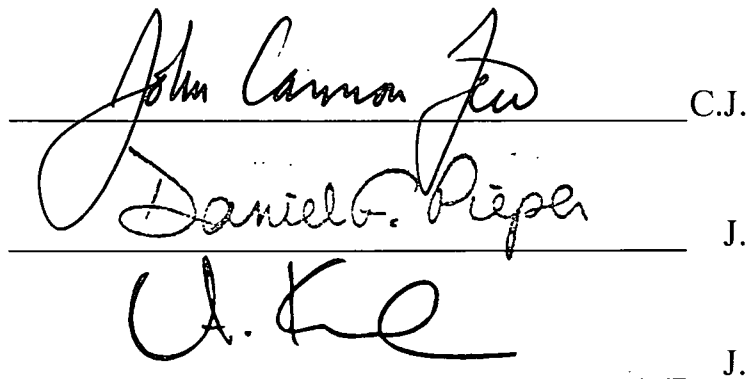 John Cannon Few C.J.
Daniel F. Pieper J.
A. K J.